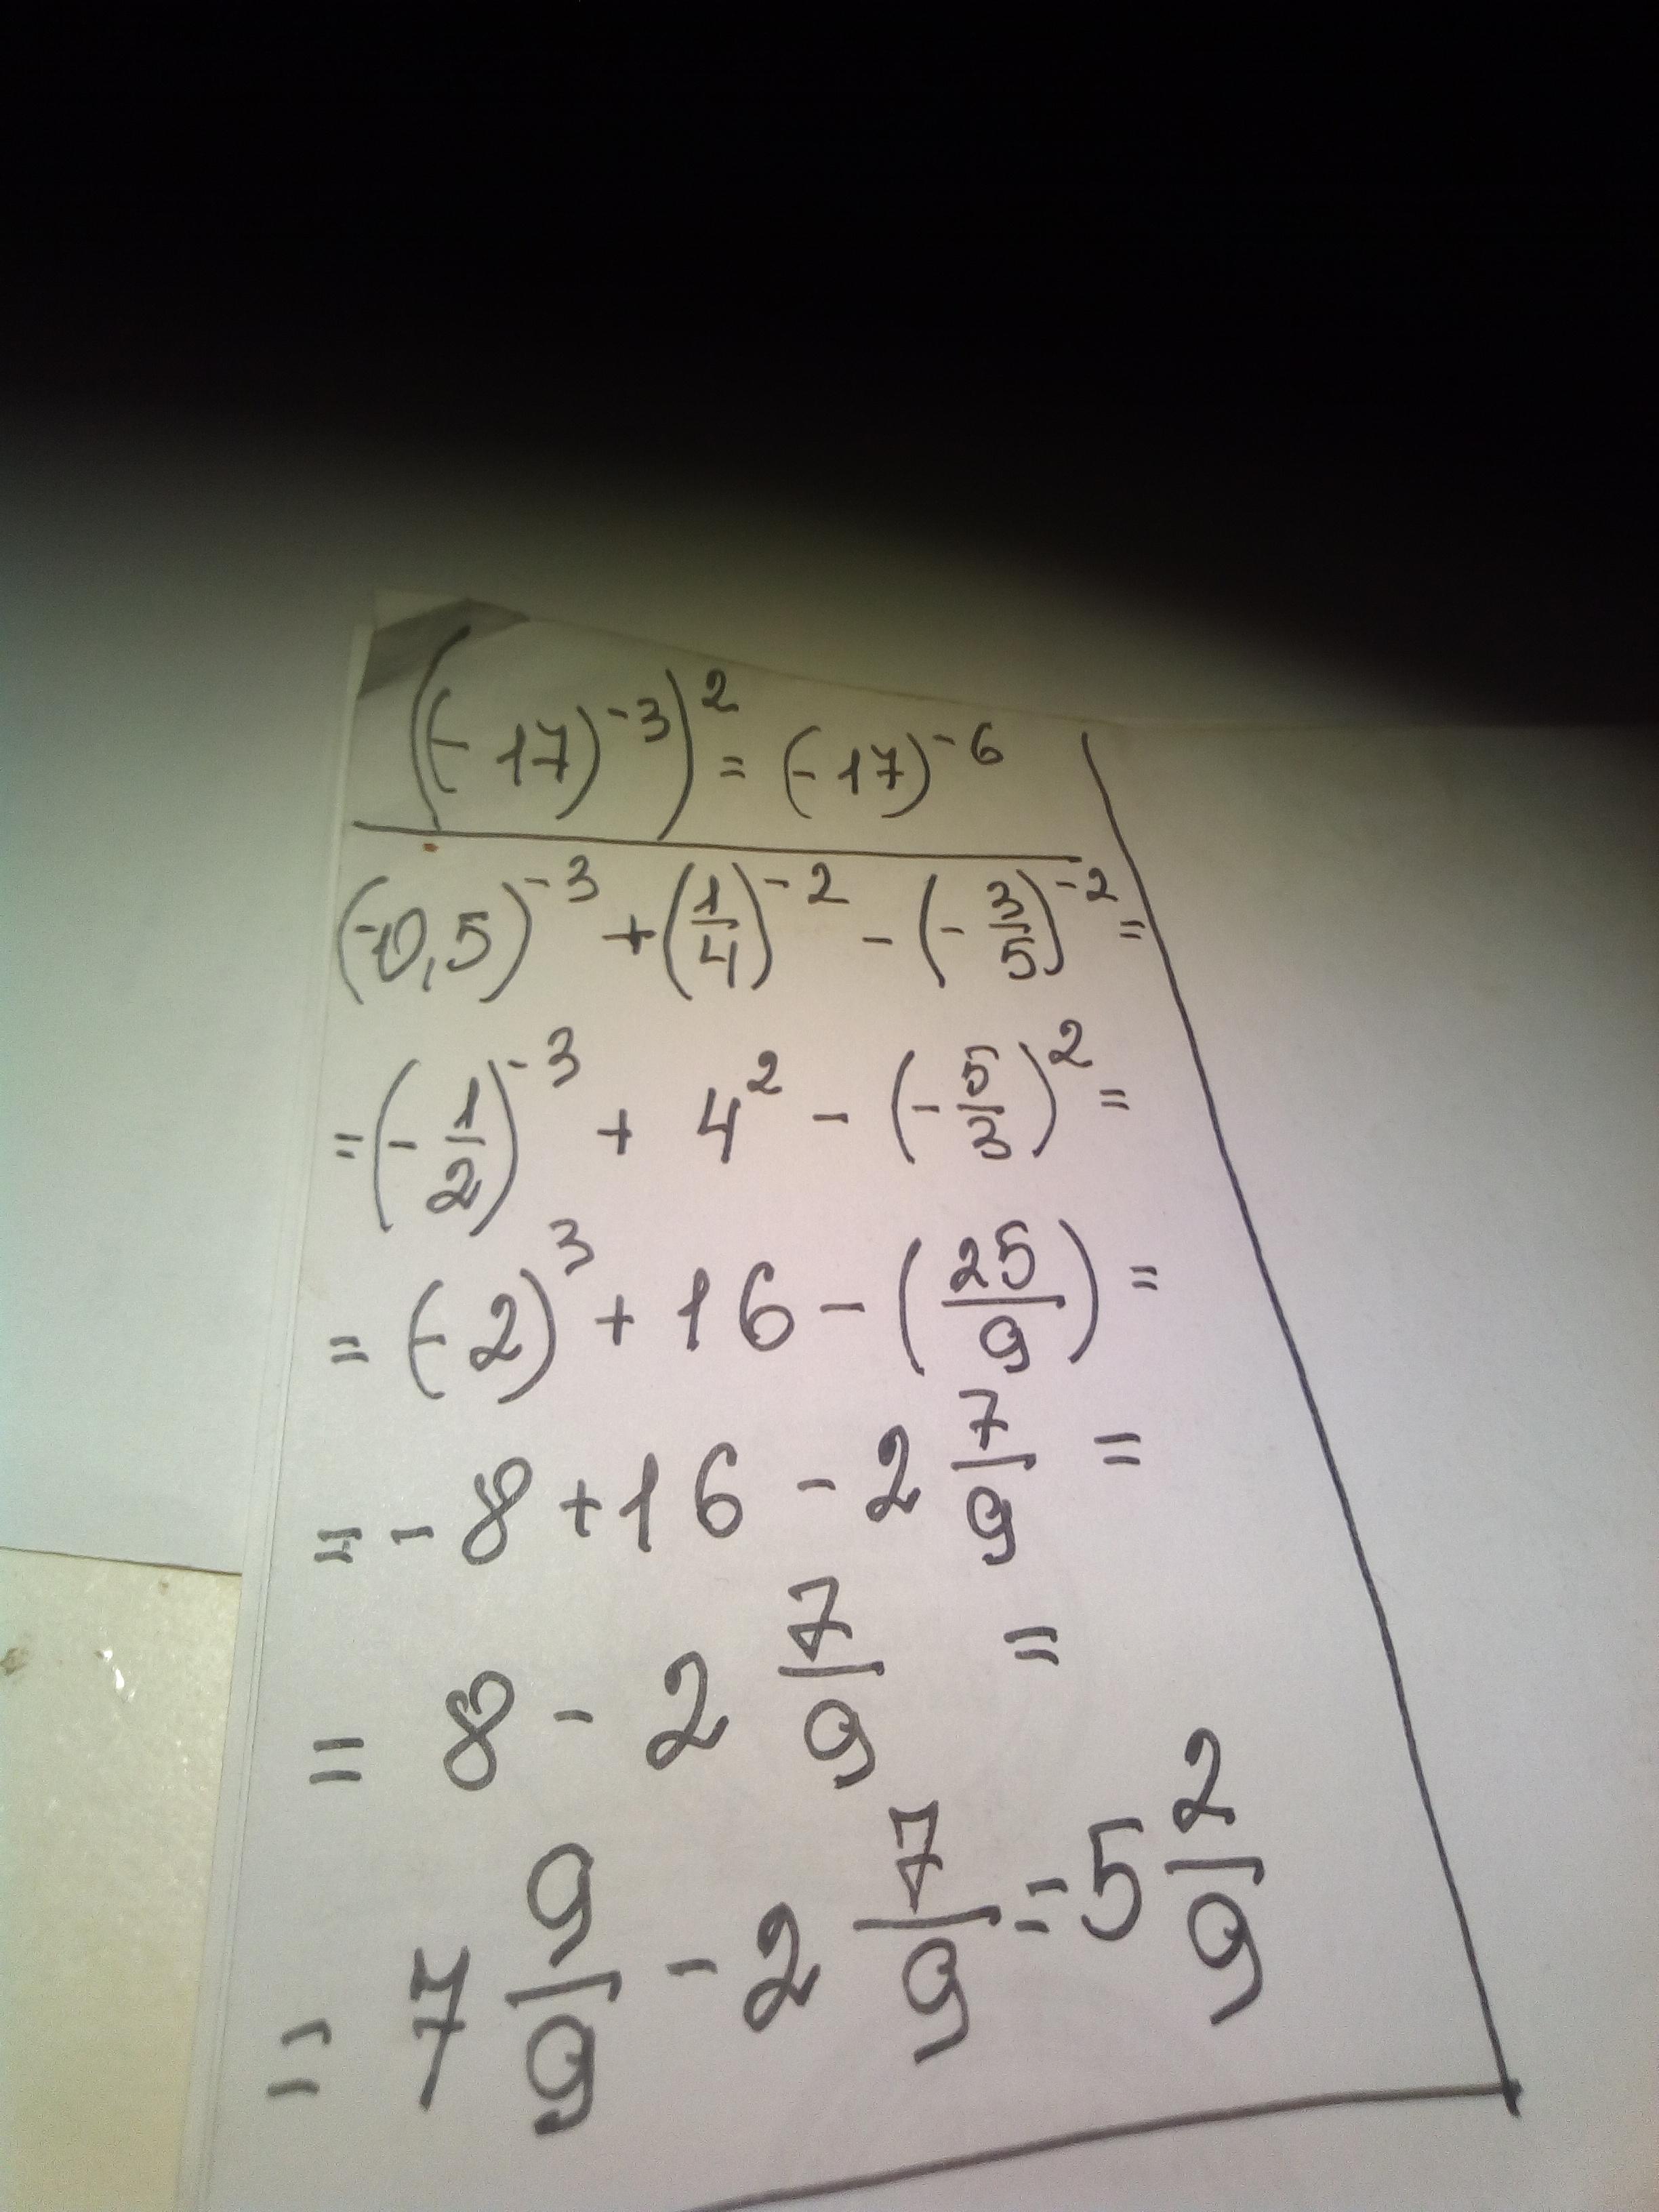 ((-17)^-3)^2 = (-17)^-6
(-0,5)^-3 + (1/4)^-2 - (-3/5)^-2 =
= (-1/2)^-3 + 4^2 - (-5/3)^2 =
= (-2)^3 + 16 - (25/9) =
= -8 + 16 - 2 7/9 =
= 8 - 2 7/9 =
= 7 9/9 - 2 7/9 = 5 2/9